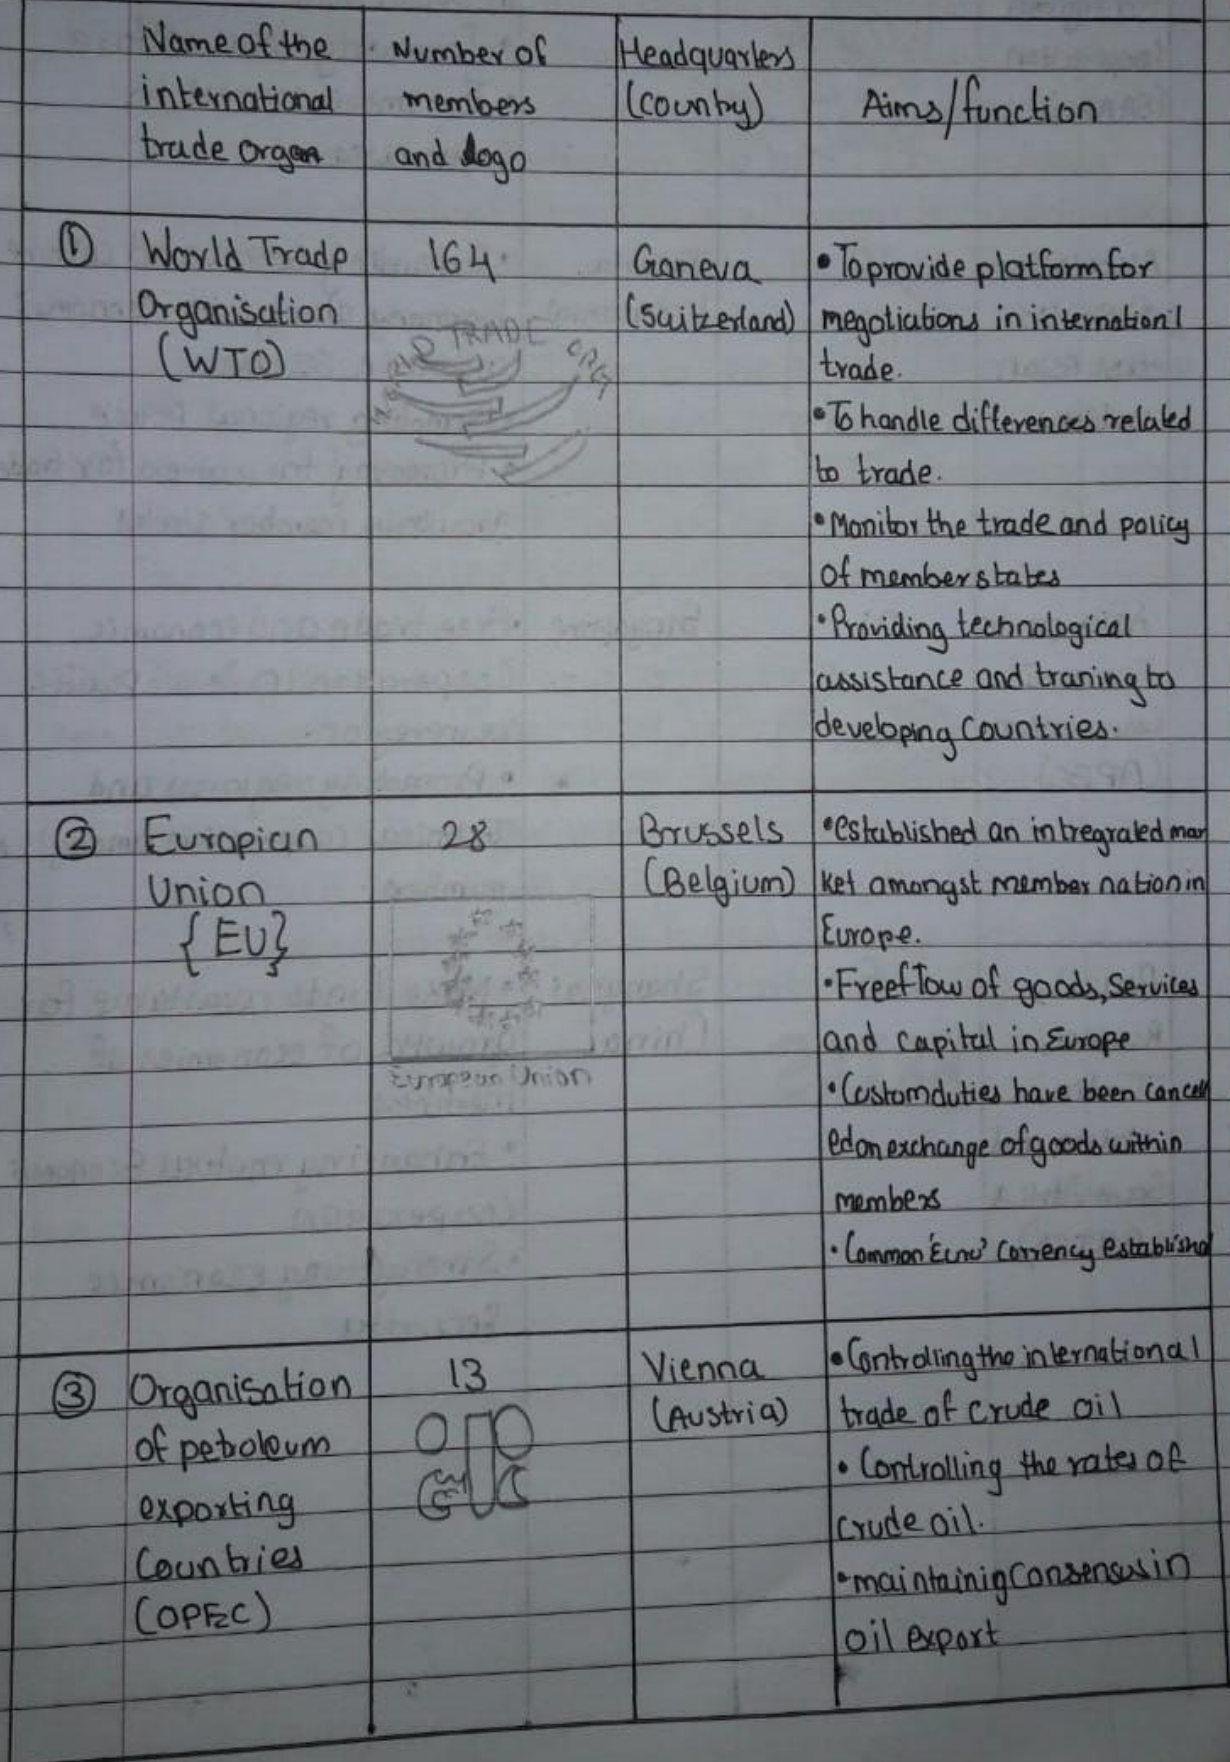 Name of the
international
trade organ
Number of
members
and logo
Headquarters
(country)
Aims/function
① World Trade
Organisation
(WTO)
164
WORLD TRADE ORG
Ganeva
(Suitzerland)
• To provide platform for
megotiations in internation'l
trade.
• To handle differences related
to trade.
• Monitor the trade and policy
of member states
• Providing technological
assistance and traning to
developing countries.
② Europian
Union
{EU}
28
European Union
Brussels
(Belgium)
• established an intregrated mar
ket amongst member nation in
Europe.
• Free flow of goods, services
and capital in Europe
• Custom duties have been cancell
ed on exchange of goods within
members
• Common 'Ecru' Correncyestablished
③ Organisation
of petroleum
exporting
Countries
(OPEC)
13
Vienna
(Austria)
• Controlling the international
trade of crude oil
• Controlling the rates of
crude oil.
• maintainig consensus in
oil export